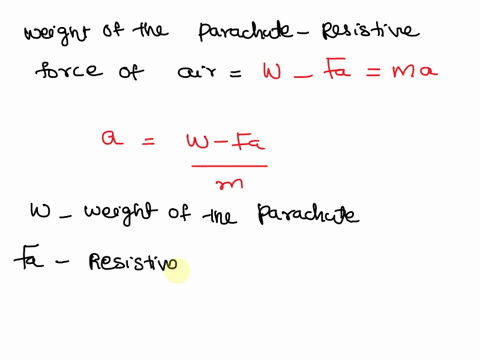 weight of the parachute - Resistive
force of air = W - Fa = ma
a = W - Fa
m
W - weight of the parachute
Fa - Resistiv